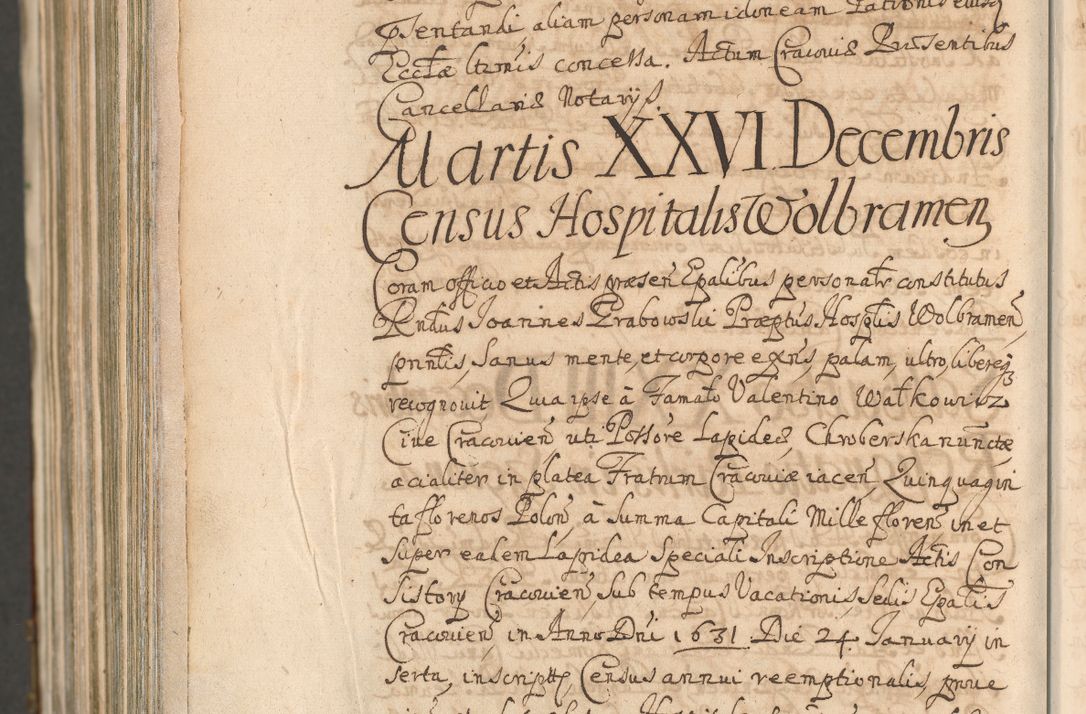 psentandi aliam personam idoneam Rationis eiusq
Eccłæ ltimis concessa. Actum Cracoviæ Præsentibus
Cancellariæ Notarijs
Martis XXVI Decembris
Census Hospitalis Wolbramen
Coram officio et Actis præsen Epalibus personalr constitutus
Rndus Joannes Grabowski Præptus Hosplis Wolbramen
pnntis, Sanus mente, et corpore exns, palam, ultro, libereq
recognovit Quia ipse à Famato Valentino Wałkowicz
Cive Cracovien uti Possore Lapideæ Chroberska nunctæ
acialiter in platea Fratrum Cracoviæ iacen, Quinquagin
ta florenos Polon à Summa Capitali Mille floren in et
super ealem Lapidea Speciali Inscriptione Actis Con
sistorij Cracovien, sub tempus Vacationis, Sedis Epalis
Cracovien in Anno Dni 1631 Die 24 Januarij in
serta, inscriptt, Census annui reemptionalis, prove